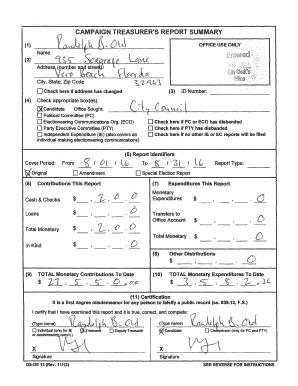 CAMPAIGN TREASURER'S REPORT SUMMARY
(1) Randolph B. Old
Name
OFFICE USE ONLY
(2) 935 Seagrape Lane
Address (number and street)
Vero Beach Florida
City, State, Zip Code
32963
Entered
City Clerk's
Office
Check here if address has changed
(3) ID Number:
(4) Check appropriate box(es):
Candidate Office Sought: City Council
Political Committee (PC)
Electioneering Communications Org. (ECO)
Check here if PC or ECO has disbanded
Party Executive Committee (PTY)
Check here if PTY has disbanded
Independent Expenditure (IE) (also covers an
individual making electioneering communications)
Check here if no other IE or EC reports will be filed
(5) Report Identifiers
Cover Period: From 8 / 01 / 16 To 8 / 31 / 16 Report Type:
Original Amendment Special Election Report
(6) Contributions This Report
(7) Expenditures This Report
Cash & Checks $ 200
Monetary
Expenditures $ 0
Loans $ 0
Transfers to
Office Account $ 0
Total Monetary $ 200
Total Monetary $ 0
In-Kind $ 0
(8) Other Distributions
$ 0
(9) TOTAL Monetary Contributions To Date
$ 27,550.00
(10) TOTAL Monetary Expenditures To Date
$ 3,582.36
(11) Certification
It is a first degree misdemeanor for any person to falsify a public record (ss. 839.13, F.S.)
I certify that I have examined this report and it is true, correct, and complete:
(Type name) Randolph B. Old
(Type name) Randolph B. Old
Individual (only for IE
Treasurer
Deputy Treasurer
Candidate
Chairperson (only for PC and PTY)
X
X
Signature
Signature
DS-DE 12 (Rev. 11/13)
SEE REVERSE FOR INSTRUCTIONS